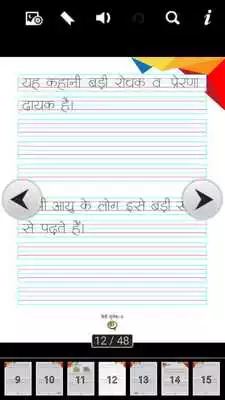 यह कहानी बड़ी रोचक व प्रेरणा
दायक है।
आयु के लोग इसे बड़ी
से पढ़ते हैं।
12 / 48
9 10 11 12 13 14 15